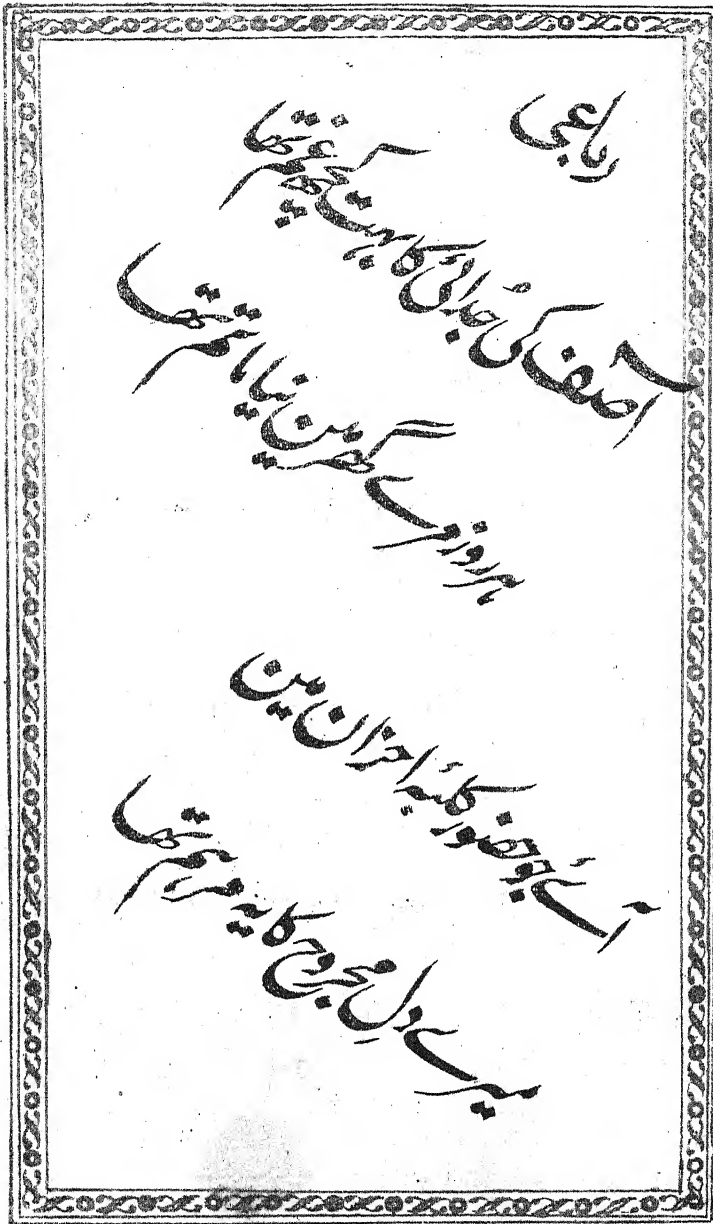 رباعی
آصف کی جُدائی کا بہت کچھ غم تھا
ہر روز مرے گھر مین نیا ماتم تھا
آئے جو حضور کلبۂ احزان مین
میرے دلِ مجروح کا یہ مرہم تھا